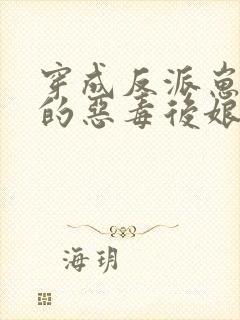 穿成反派崽
的惡毒後娘
海玥